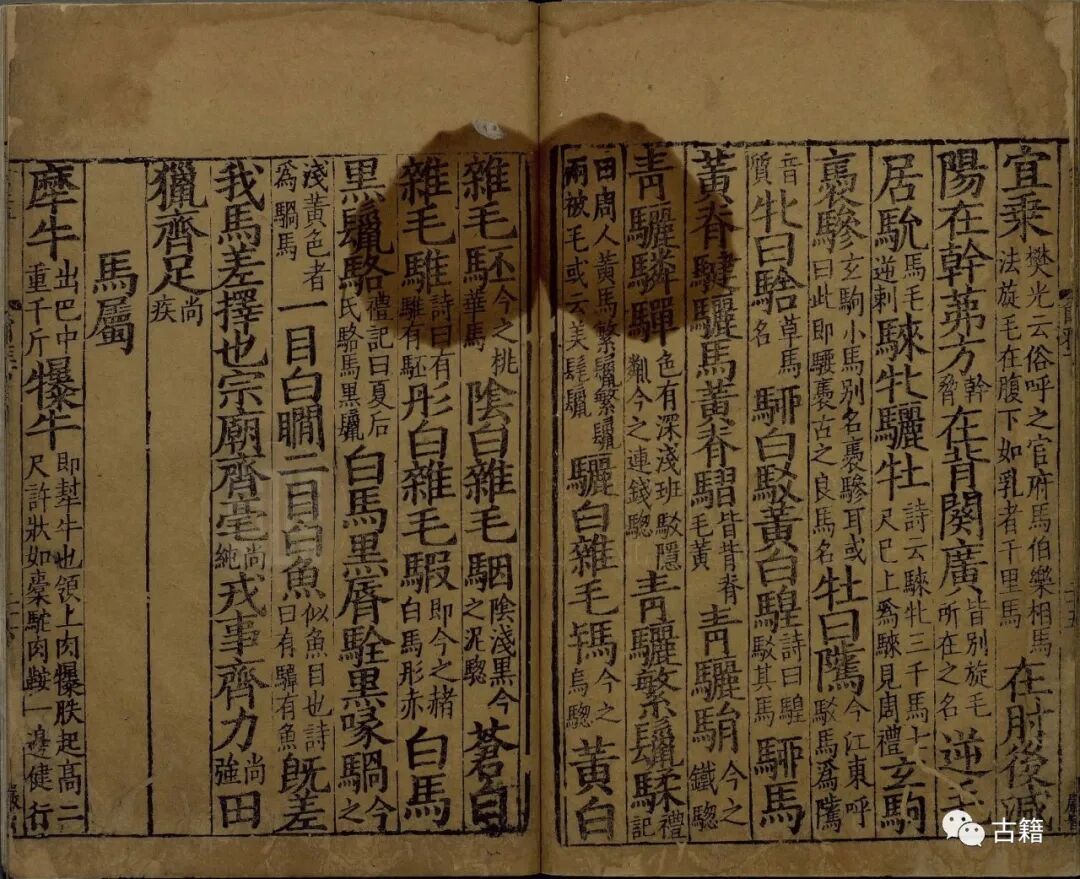 宜乗樊光云俗呼之官府馬伯樂相馬法旋毛在腹下如乳者千里馬在肘後減
陽在幹茀方幹脅在背闋廣皆別旋毛所在之名逆毛
居馻馬毛逆刺騋牝驪牡詩云騋牝三千馬七尺巳上爲騋見周禮玄駒
褭驂玄駒小馬別名褭驂耳或曰此即騕褭古之良馬名牡曰騭今江東呼駮馬爲騭
音質牝曰騇草馬名駵白駮黃白騜詩曰騜駮其馬駵馬
黃脊騝驪馬黃脊騽皆背脊毛黃青驪駽今之鐵騘
青驪驎驒色有深淺班駮隱粼今之連錢騘青驪繁鬣騥禮記
曰周人黃馬繁鬣繁鬣兩被毛或云美髦鬣驪白雜毛駂今之烏騘黃白
雜毛駓今之桃華馬陰白雜毛駰陰淺黑今之泥騘蒼白
雜毛騅詩曰有騅有駓彤白雜毛騢即今之赭白馬彤赤白馬
黑鬣駱禮記曰夏后氏駱馬黑鬣白馬黑脣駩黑喙騧今之
淺黃色者爲騧馬一目白瞯二目白魚似魚目也詩曰有驔有魚既差
我馬差擇也宗廟齊毫尚純戎事齊力尚強田
獵齊足尚疾
馬屬
犘牛出巴中重千斤犦牛即犎牛也領上肉犦胅起高二尺許狀如橐駝肉鞍一邊健行
古籍